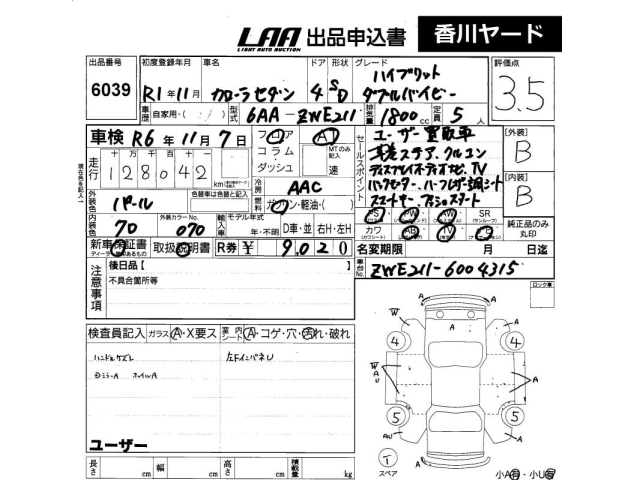 LAA 出品申込書 香川ヤード
LIGHT AUTO AUCTION
出品番号
6039
初度登録年月 車名 ドア 形状 グレード
R1年11月 カローラセダン 4 SD
ハイブリット
ダブルバイビー
評価点
3.5
車歴 自家用・( )
型式 6AA-ZWE211
排気量 1800cc
定員 5人
車検 R6年11月7日
走行 十万 万 千 百 十
128042
km
フロア
コラム
ダッシュ
A
MTのみ記入
速
冷房 AAC
燃料 ガソリン・軽油・( )
セールスポイント
ユーザー買取車
革巻ステア.クルコン
ディスプレイオーディオナビ.TV
バックモニター.ハーフレザー調シート
スマートキー.プッシュスタート
[外装]
B
[内装]
B
外装色 パール
色替車は色替と記入
内装色 70
外装カラーNo. 070
輸入車 モデル年式 年・不明
D車・並 右H・左H
PS PW AW SR
(パワステ) (パワーウインド) (アルミホイール) (サンルーフ)
カワ AB TV
(カワシート) (エアバック) (テレビ)
純正品のみ
丸印
新車保証書
ディーラー印があるもの
取扱説明書
R券 ¥ 9,020
名変期限 月 日迄
車台No. ZWE211-6004315
注意事項
後日品【
不具合箇所等
現在色を記入
ロック車
検査員記入 ガラス A・X要ス
内シート A・コゲ・穴・汚れ・破れ
ハンドルサズレ
左FインパネU
ホイルA
ユーザー
長さ cm 幅 cm 高さ cm 積載量 kg
W A
4 4
A
W A U A
A
5 5
AU A
T
スペア
小A・小U